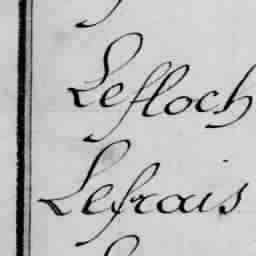 Lefloch
Lefrais